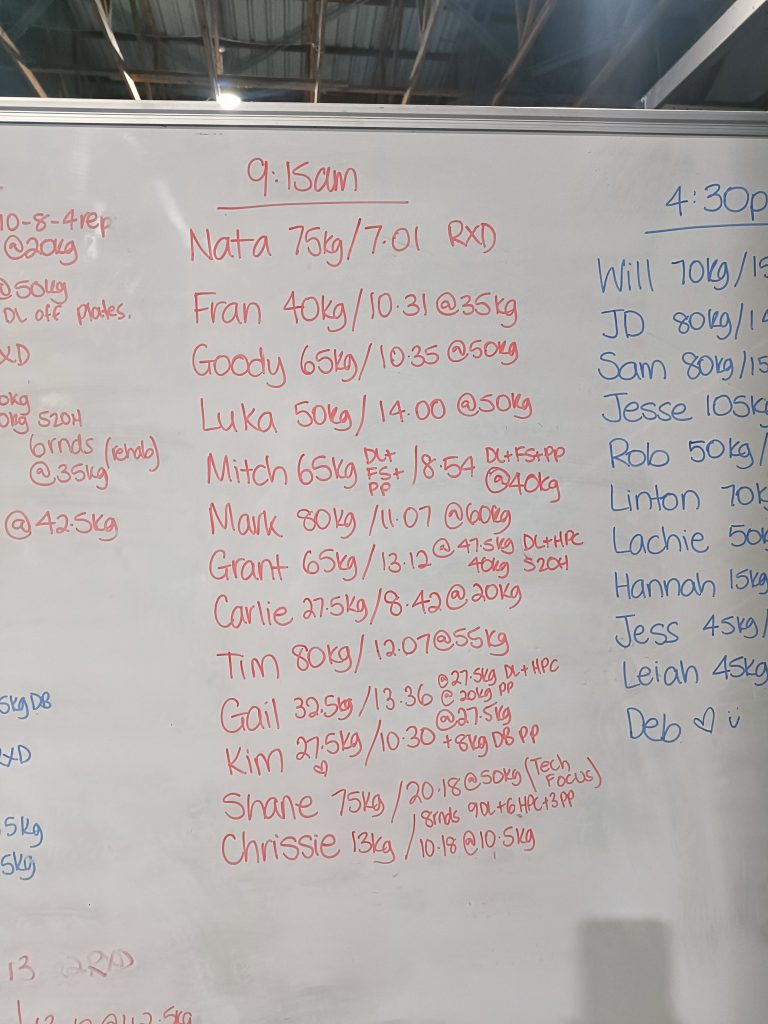 10-8-4rep
@20kg
@50kg
DL off plates.
XD
0kg
0kg S2OH
6rnds (rehab)
@35kg
@42.5kg
5kg DB
XD
5kg
5kg
13 2RXD
@42.5kg
9:15am
Nata 75kg/7.01 RXD
Fran 40kg/10.31 @35kg
Goody 65kg/10.35 @50kg
Luka 50kg/14.00 @50kg
Mitch 65kg DL+FS+PP /8.54 DL+FS+PP @40kg
Mark 80kg/11.07 @60kg
Grant 65kg/13.12 @47.5kg DL+HPC 40kg S2OH
Carlie 27.5kg/8.42@20kg
Tim 80kg/12.07@55kg
Gail 32.5kg/13.36 @27.5kg DL+HPC @20kg PP
Kim 27.5kg/10.30 @27.5kg +8kg DB PP
♡
Shane 75kg/20.18@50kg (Tech Focus)
Chrissie 13kg/8rnds 9DL+6HPC+3PP
10.18@10.5kg
4:30p
Will 70kg/15
JD 80kg/14
Sam 80kg/15
Jesse 105k
Rob 50kg/
Linton 70k
Lachie 50k
Hannah 15kg
Jess 45kg/
Leiah 45kg
Deb ♡ ü